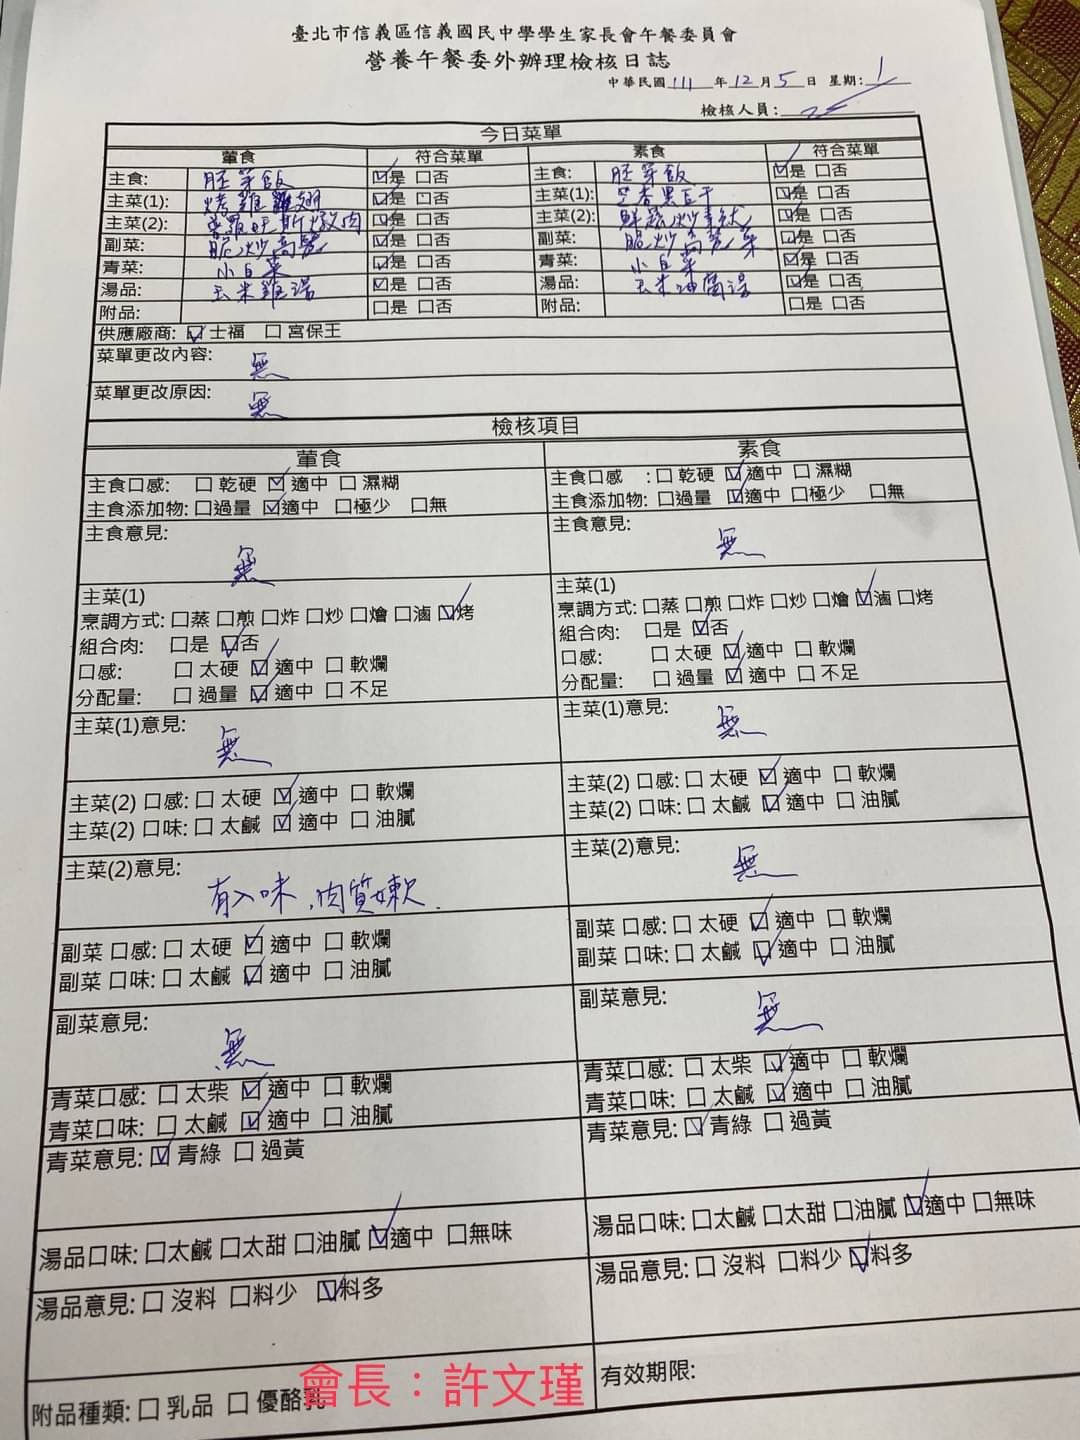 臺北市信義區信義國民中學學生家長會午餐委員會
營養午餐委外辦理檢核日誌
中華民國 111 年 12 月 5 日 星期: 1
檢核人員:
今日菜單
葷食 符合菜單 素食 符合菜單
主食: 胚芽飯 ☑是 □否 主食: 胚芽飯 ☑是 □否
主菜(1): 烤雞翅 ☑是 □否 主菜(1): 黑豆干 ☑是 □否
主菜(2): 普羅旺斯燉肉 ☑是 □否 主菜(2): 鮮蔬炒素 ☑是 □否
副菜: 脆炒高麗 ☑是 □否 副菜: 脆炒高麗菜 ☑是 □否
青菜: 小白菜 ☑是 □否 青菜: 小白菜 ☑是 □否
湯品: 玉米雞湯 ☑是 □否 湯品: 玉米油腐湯 ☑是 □否
附品: □是 □否 附品: □是 □否
供應廠商: ☑士福 □宮保王
菜單更改內容: 無
菜單更改原因: 無
檢核項目
葷食 素食
主食口感: □ 乾硬 ☑ 適中 □ 濕糊 主食口感 : □ 乾硬 ☑ 適中 □ 濕糊
主食添加物: □過量 ☑適中 □極少 □無 主食添加物: □過量 ☑適中 □極少 □無
主食意見: 無 主食意見: 無
主菜(1) 主菜(1)
烹調方式: □蒸 □煎 □炸 □炒 □燴 □滷 ☑烤 烹調方式: □蒸 □煎 □炸 □炒 □燴 ☑滷 □烤
組合肉: □是 ☑否 組合肉: □是 ☑否
口感: □ 太硬 ☑ 適中 □ 軟爛 口感: □ 太硬 ☑ 適中 □ 軟爛
分配量: □ 過量 ☑ 適中 □ 不足 分配量: □ 過量 ☑ 適中 □ 不足
主菜(1)意見: 無 主菜(1)意見: 無
主菜(2) 口感: □ 太硬 ☑ 適中 □ 軟爛 主菜(2) 口感: □ 太硬 ☑ 適中 □ 軟爛
主菜(2) 口味: □ 太鹹 ☑ 適中 □ 油膩 主菜(2) 口味: □ 太鹹 ☑ 適中 □ 油膩
主菜(2)意見: 有入味,肉質嫩. 主菜(2)意見: 無
副菜 口感: □ 太硬 ☑ 適中 □ 軟爛 副菜 口感: □ 太硬 ☑ 適中 □ 軟爛
副菜 口味: □ 太鹹 ☑ 適中 □ 油膩 副菜 口味: □ 太鹹 ☑ 適中 □ 油膩
副菜意見: 無 副菜意見: 無
青菜口感: □ 太柴 ☑ 適中 □ 軟爛 青菜口感: □ 太柴 ☑ 適中 □ 軟爛
青菜口味: □ 太鹹 ☑ 適中 □ 油膩 青菜口味: □ 太鹹 ☑ 適中 □ 油膩
青菜意見: ☑ 青綠 □ 過黃 青菜意見: ☑ 青綠 □ 過黃
湯品口味: □太鹹 □太甜 □油膩 ☑適中 □無味 湯品口味: □太鹹 □太甜 □油膩 ☑適中 □無味
湯品意見: □ 沒料 □料少 ☑料多 湯品意見: □ 沒料 □料少 ☑料多
附品種類: □ 乳品 □ 優酪乳 有效期限:
會長：許文瑾